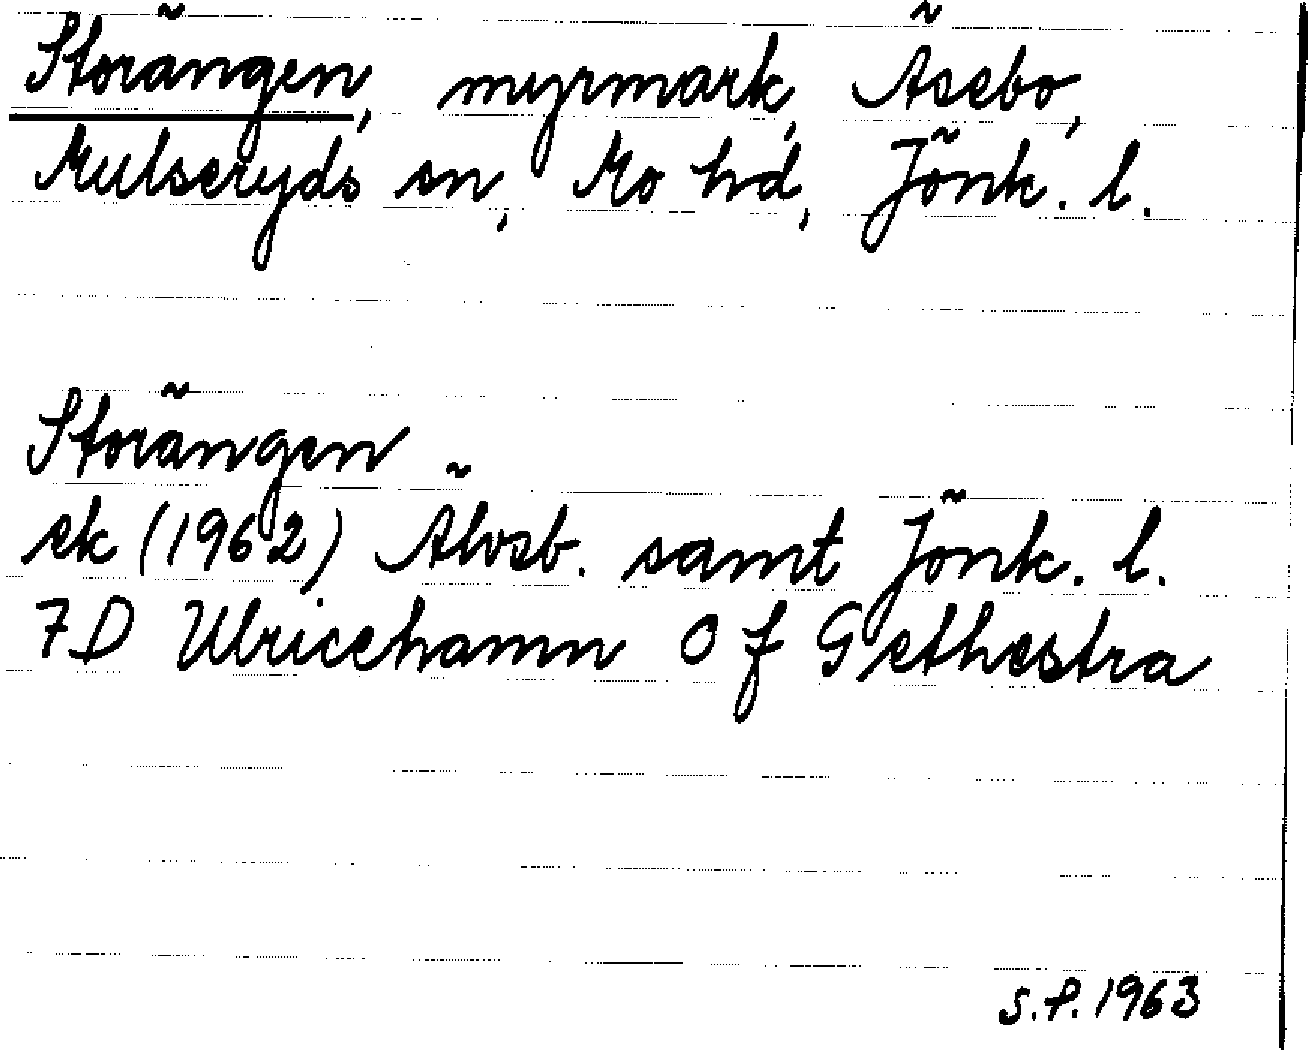 Storängen, myrmark, Äsebo,
Mulseryds sn, Mo hd, Jönk. l.
Storängen
ek (1962) Älvsb. samt Jönk. l.
7D Ulricehamn 0 f Grethestra
S.P. 1963